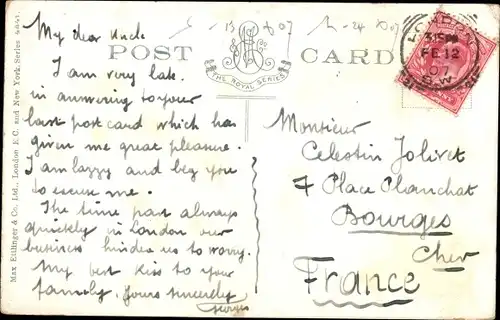 My dear Uncle
I am very late.
in answering to your
last post card which has
given me great pleasure.
I am lazzy and beg you
to excuse me.
The time pass always
quickly in London our
business hinder us to worry.
My best kiss to your
family. Yours sincerely
Georges
POST CARD
THE ROYAL SERIES
LONDON
3.15 PM
FE 12
07
Monsieur
Celestin Jolivet
7 Place Planchat
Bourges
Cher
France
Max Ettlinger & Co. Ltd., London E.C. and New York. Series